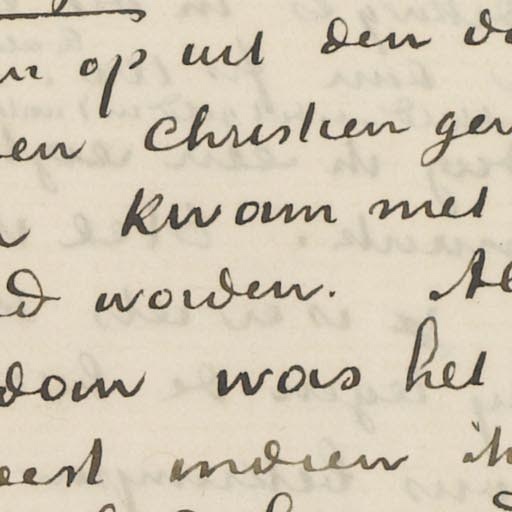 op uit den
en Christien ger
kwam met
worden. Al
dam was het
eest indien ik